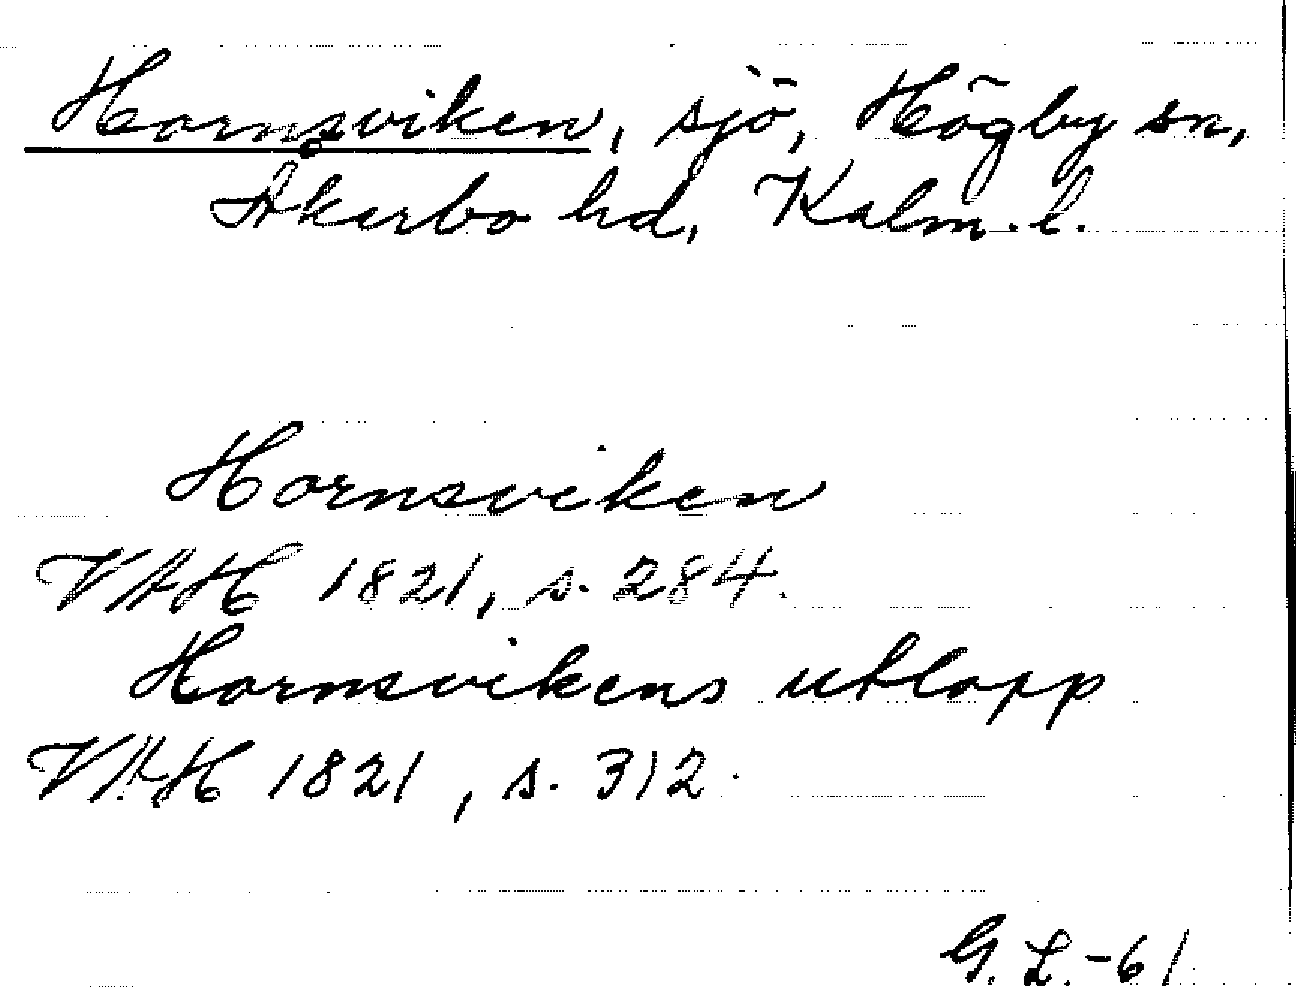 Hornsviken, sjö, Högby sn,
Åkerbo hd, Kalm. l.
Hornsviken
VAH 1821, s. 284.
Hornsvikens utlopp
VAH 1821, s. 312.
G. L. -61